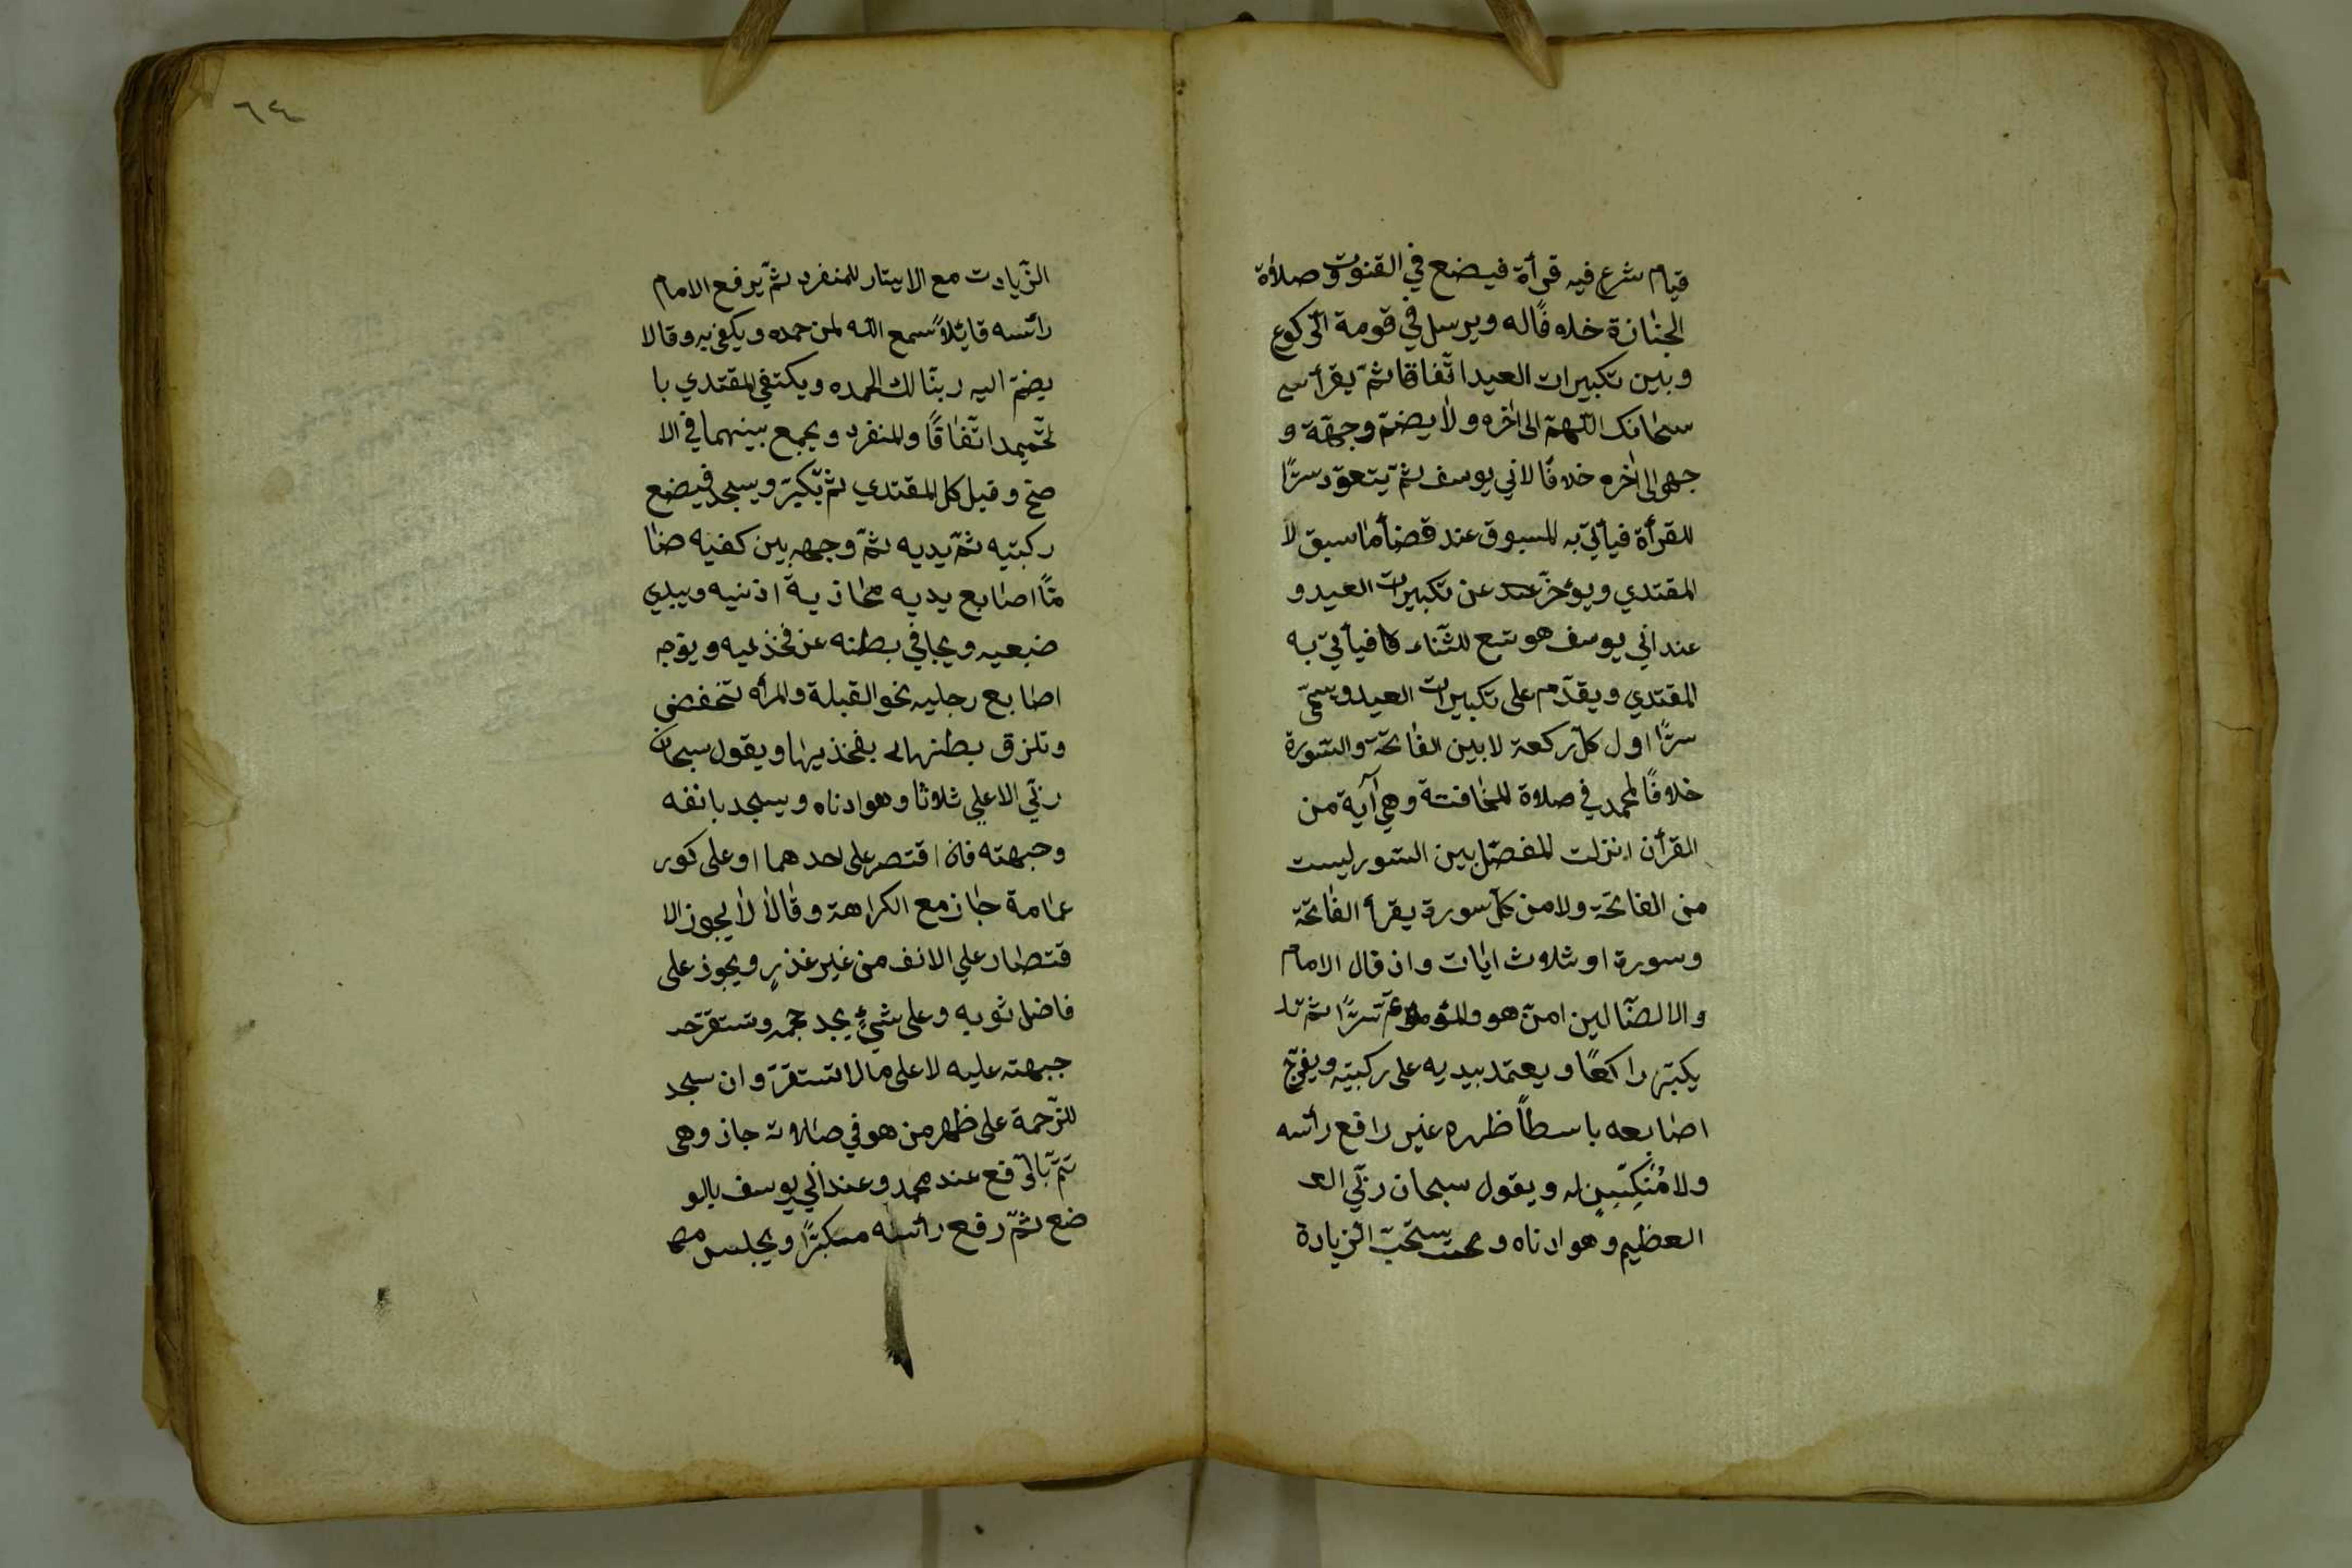 قيام شرع فيه قرأة فيضع في القنوت و صلاة
الجنازة خلافًا له ويرسل في قومة الركوع
وبين تكبيرات العيد اتّفاقا ثمّ يقرأ
سبحانك اللّهمّ الى اخره ولا يضمّ وجّهت و
جهي الى اخره خلافًا لابي يوسف ثمّ يتعوّد سرًّا
للقرأة فيأتي به المسبوق عند قضأ ما سبق لا
المقتدي ويؤخّر عن تكبيرات العيد و
عند ابي يوسف هو تبع للثّناء فيأتي به
المقتدي ويقدّم على تكبيرات العيد ويسمّي
سرًّا اول كلّ ركعة لا بين الفاتحة والسّورة
خلافًا لمحمد في صلاة المخافتة وهي آية من
القرأن انزلت للفصل بين السّور ليست
من الفاتحة ولا من كلّ سورة يقرأ الفاتحة
وسورة او ثلاث ايات واذ قال الامام
والا الضّالين امن هو والمؤتم سرًّا ثمّ
يكبّر راكعًا ويعتمد بيديه على ركبتيه ويفرّج
اصابعه باسطًا ظهره غير رافع رأسه
ولا مُنَكِّسٍ له ويقول سبحان ربّي الع
العظيم وهو ادناه و يستحبّ الزيادة
٦٤
الزّيادت مع الايتار للمنفرد ثمّ يرفع الامام
رأسه قايلاً سمع الله لمن حمده ويكفي به وقالا
يضمّ اليه ربّنا لك الحمده ويكتفي المقتدي با
لتّحميد اتّفاقًا والمنفرد ويجمع بينهما في الا
صحّ وقيل كل المقتدي ثمّ يكبّر ويسجد فيضع
ركبتيه ثمّ يديه ثمّ وجهه بين كفيه ضا
مًّا اصابع يديه محاذية اذنيه ويبدي
ضبعيه ويجافي بطنه عن فخذيه ويوّجه
اصابع رجليه نحو القبلة والمرأه تنخفض
وتلزق بطنها بفخذيها ويقول سبحان
ربّي الاعلي ثلاثا وهو ادناه ويسجد بانفه
وجبهته فان اقتصر على احدهما او على كور
عمامة جاز مع الكراهة وقالا لا يجوز الا
قتصار علي الانف من غير عذرٍ ويجوز على
فاضل ثوبه وعلى شئٍ يجد حجمه وتستقرّ
جبهته عليه لا على ما لا تستقرّ وان سجد
للزّحمة على ظهر من هو في صلاته جاز وهي
تتمّ بالرّفع عند محمد وعند ابي يوسف بالو
ضع ثمّ رفع رأسه مكبّرًا ويجلس